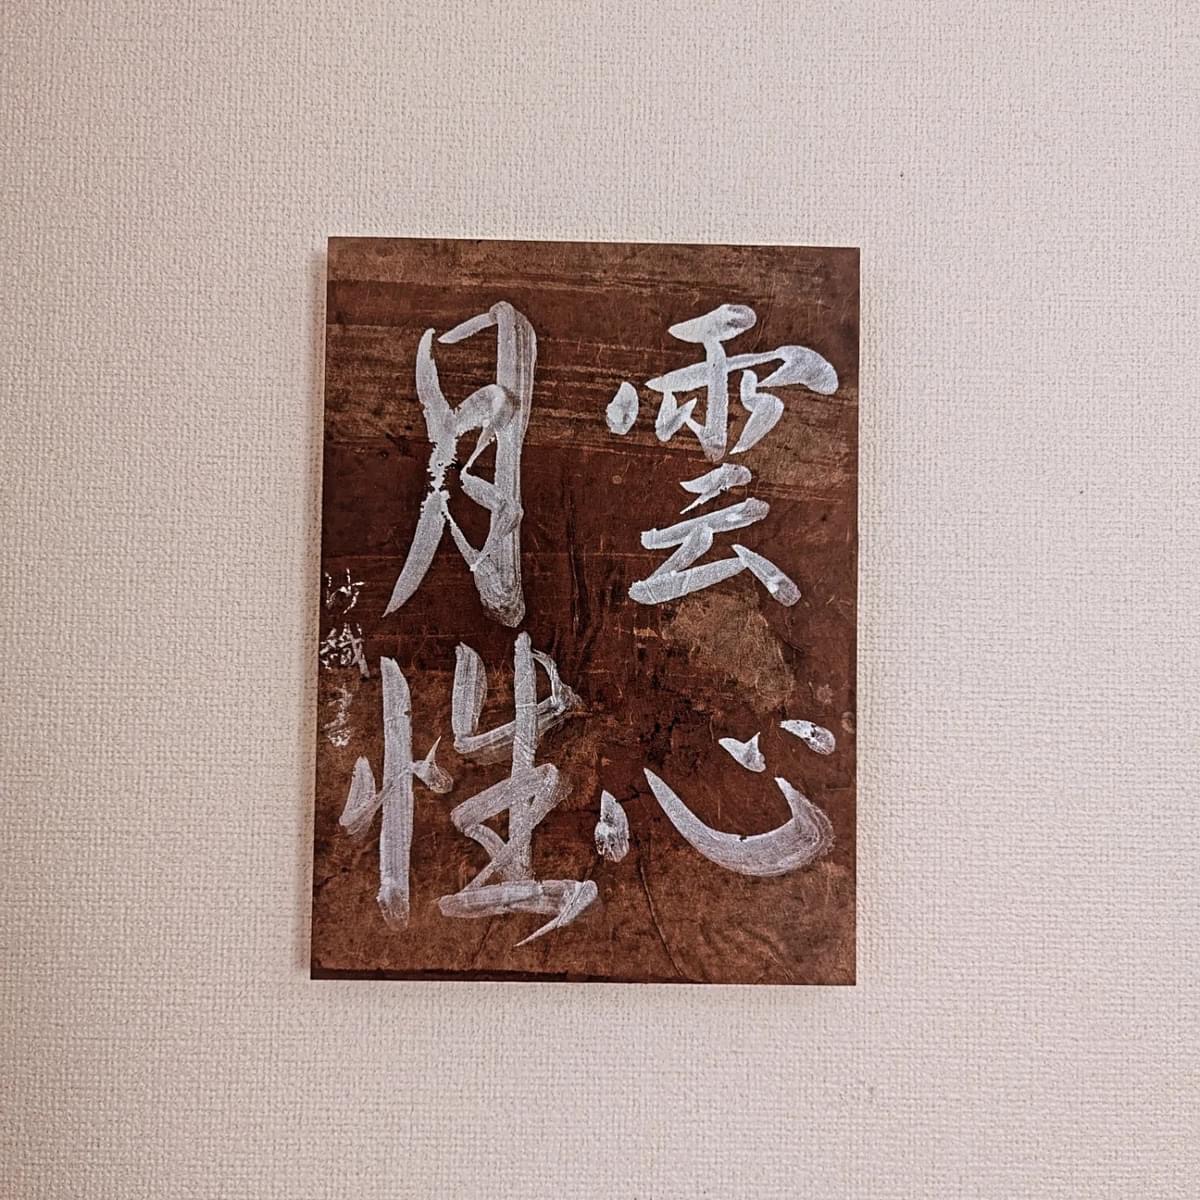 雲心
月性
沙織書